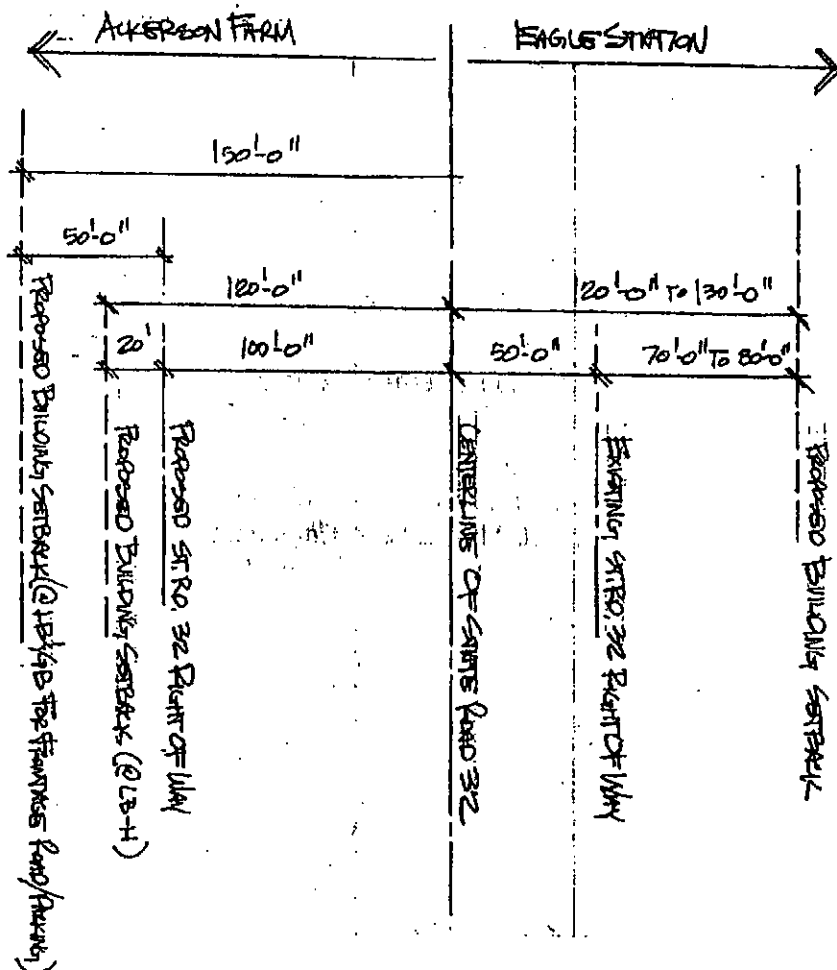 ACKERSON FARM
EAGLE STATION
150'-0"
50'-0"
120'-0"
20'-0" TO 130'-0"
20'
100'-0"
50'-0"
70'-0" TO 80'-0"
PROPOSED BUILDING SETBACK (@ LB/GB FOR FRONTAGE ROAD/PARKING)
PROPOSED BUILDING SETBACK (@ LB-H)
PROPOSED ST. RD. 32 RIGHT OF WAY
CENTERLINE OF STATE ROAD 32
EXISTING ST. RD. 32 RIGHT OF WAY
PROPOSED BUILDING SETBACK